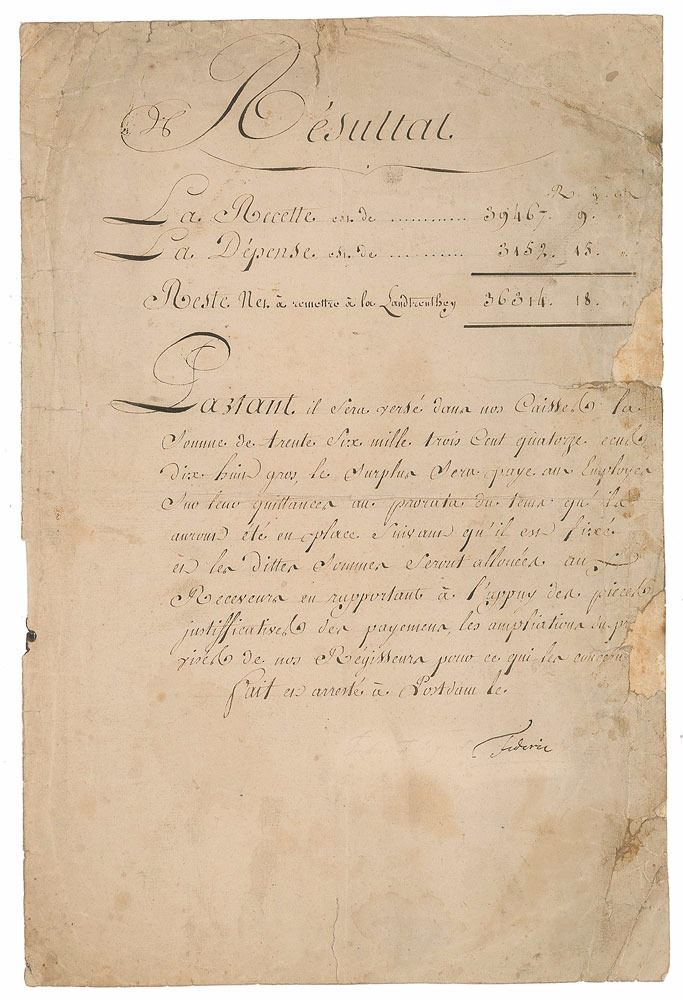 Résultat.
R. g.
La Recette est de ............ 39467. 9. "
La Dépense est de ............ 3152. 15. "
Reste Net. à remettre à la Landrenthey 36314. 18. "
Partant il sera versé dans nos Caisses la
Somme de trente Six mille trois Cent quatorze ecus
dix huit gros, le Surplus Sera paye aux Employes
Sur leur quittances au prorata du tems qu'ils
auront été en place Suivant qu'il est fixé
et les dittes Sommes Seront allouées au
Receveurs en rapportant à l'appuy des pieces
justifficatives des payemens, les ampliations du
visés de nos Régisseurs pour ce qui les
fait et arresté à Postdam le
Federic